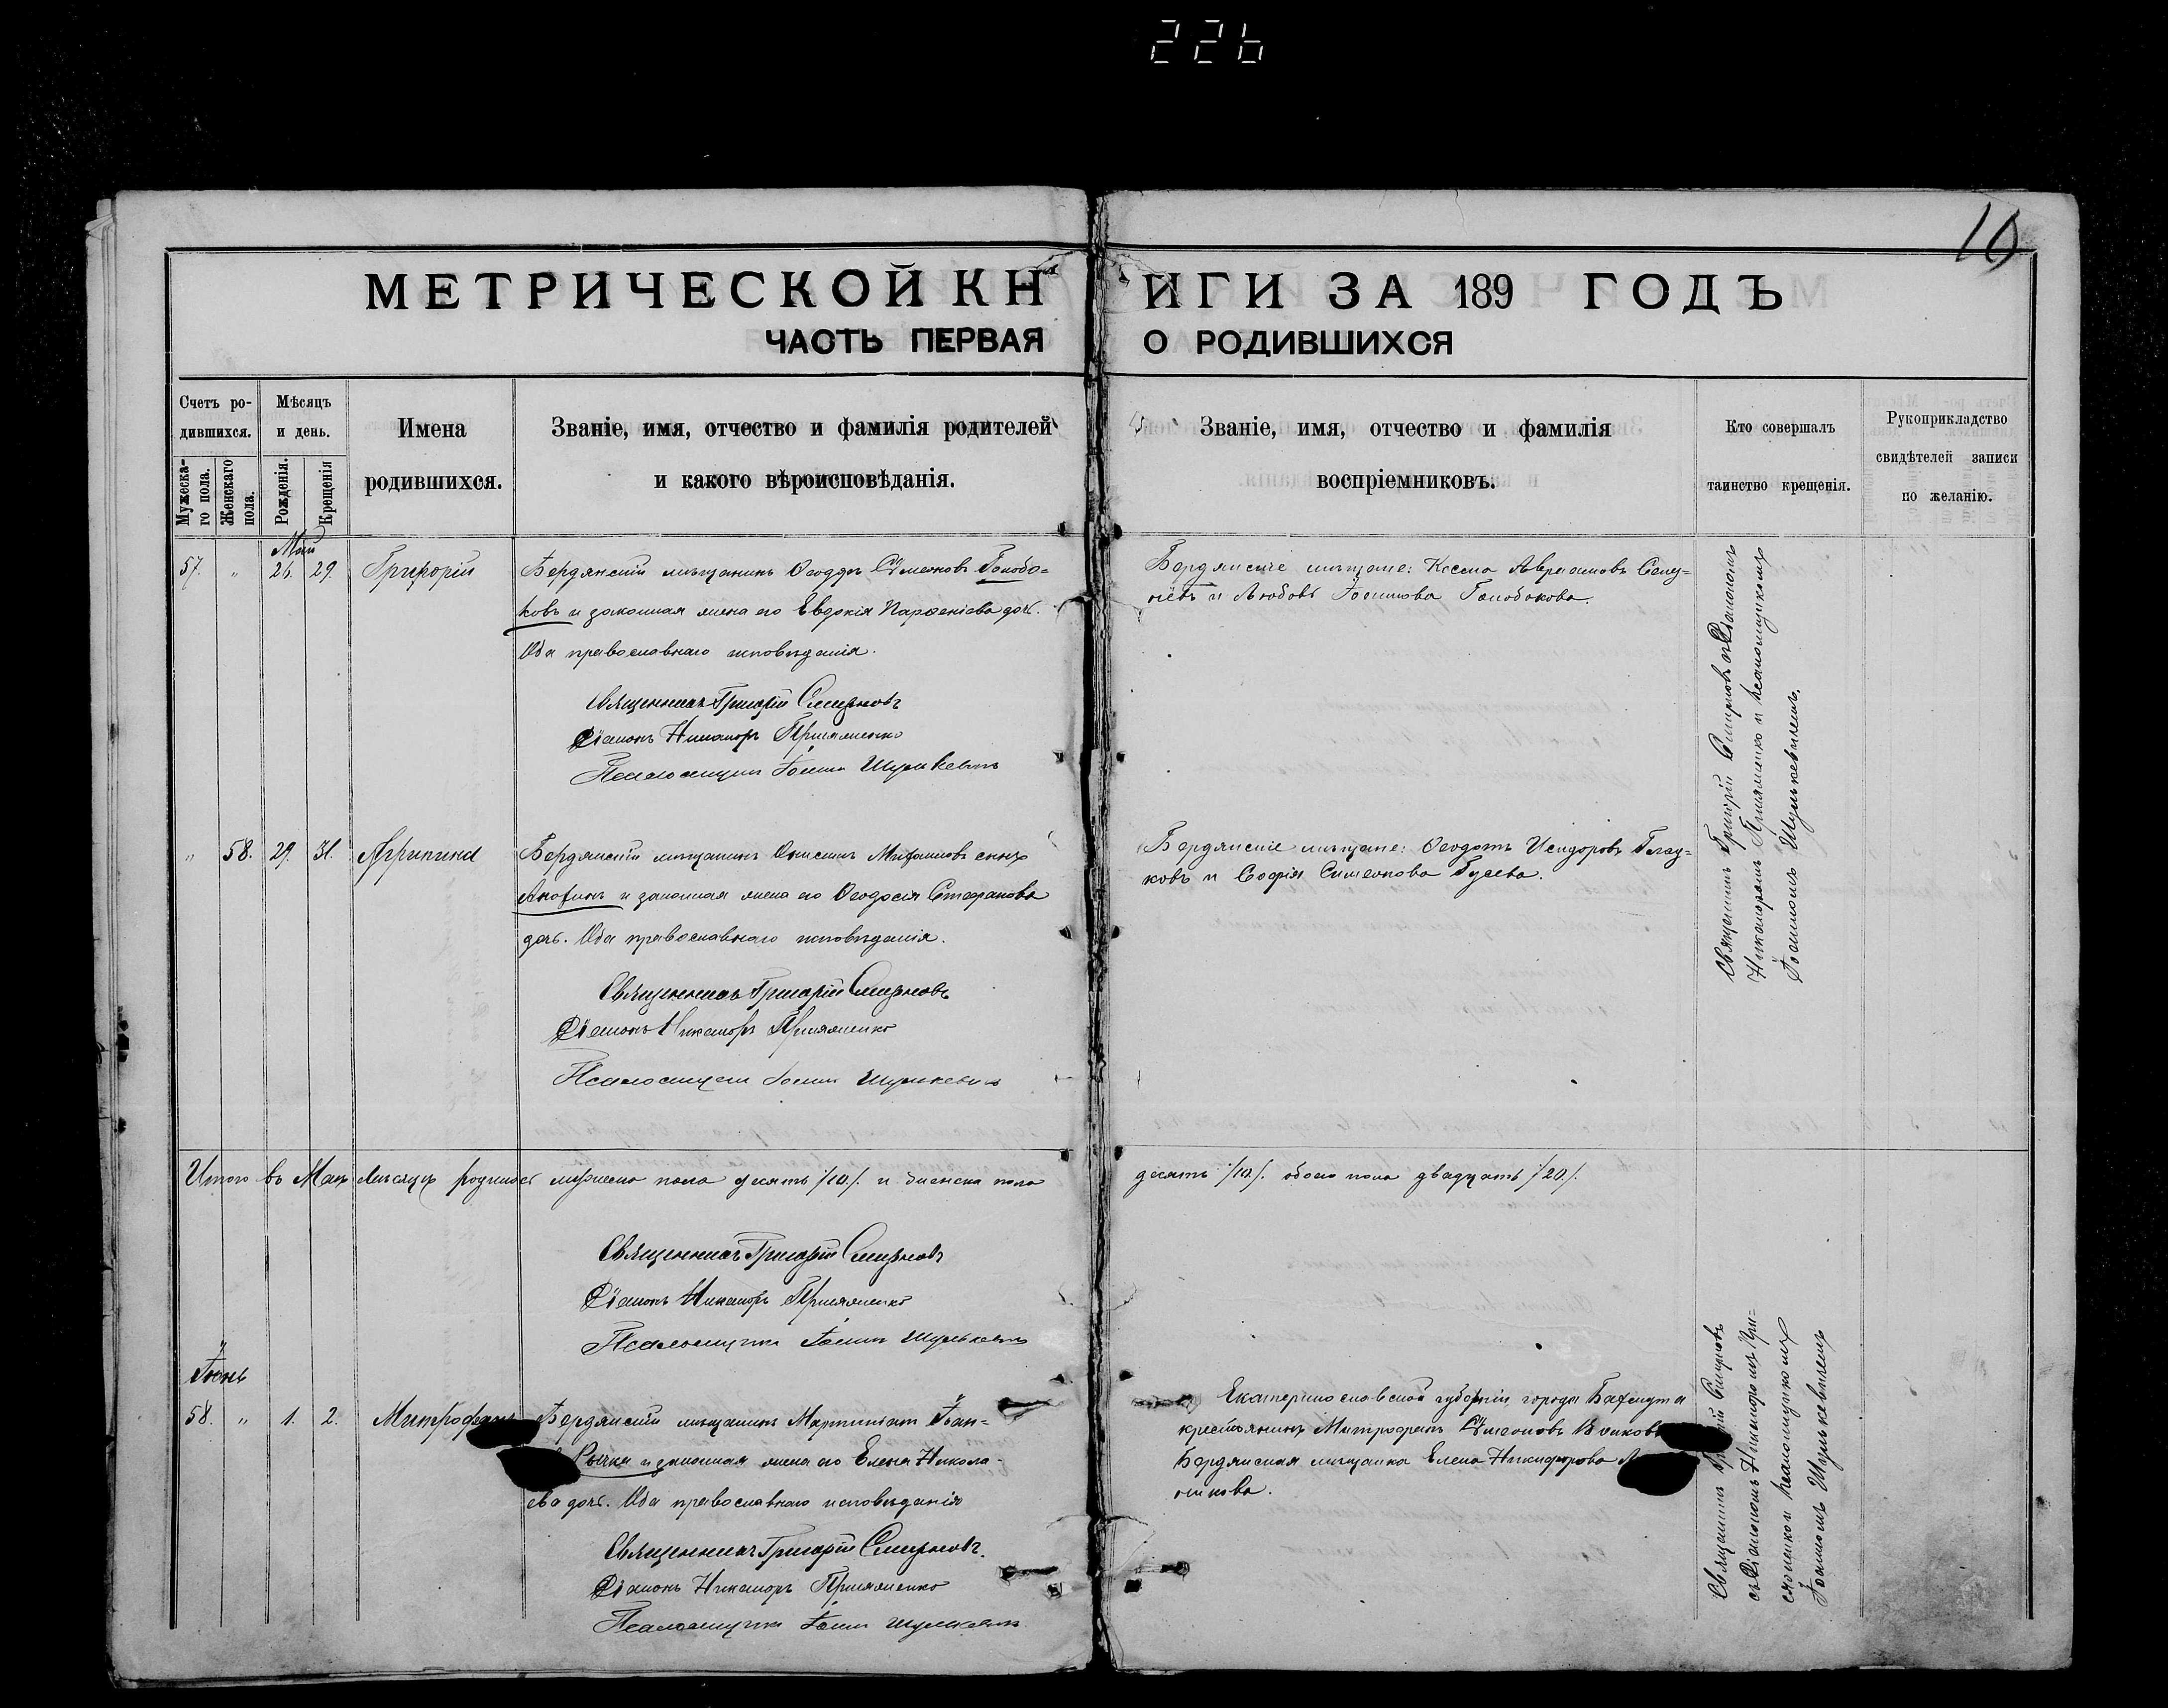 226
10
МЕТРИЧЕСКОЙ КНИГИ ЗА 189 ГОДЪ
ЧАСТЬ ПЕРВАЯ О РОДИВШИХСЯ
Счетъ ро-
дившихся.
Мужеска-
го пола.
Женскаго
пола.
Мѣсяцъ
и день.
Рожденія.
Крещенія
Имена
родившихся.
Званіе, имя, отчество и фамилія родителей
и какого вѣроисповѣданія.
Званіе, имя, отчество и фамилія
воспріемниковъ.
Кто совершалъ
таинство крещенія.
Рукоприкладство
свидѣтелей записи
по желанію.
Май
57. " 26. 29. Григорій
Бердянскій мѣщанинъ Ѳеодоръ Сѵмеоновъ Голобо-
ковъ и законная жена его Евдокія Парѳеніева доч.
Оба православнаго исповѣданія.
Священникъ Григорій Смирновъ
Діаконъ Никаноръ
Псаломщикъ Іоаннъ Шулькевичъ
Бердянскіе мѣщане: Косма Авраамовъ
и Любовь Голобокова.
Священникъ Григорій Смирновъ съ Діакономъ
Никаноромъ и псаломщикомъ
Іоанномъ Шулькевичемъ.
" 58. 29. 31. Агрипина
Бердянскій мѣщанинъ Онисимъ сынъ
Анохинъ и законная жена его Ѳеодосія Стефанова
доч. Оба православнаго исповѣданія.
Священникъ Григорій Смирновъ
Діаконъ Никаноръ
Псаломщикъ Іоаннъ Шулькевичъ
Бердянскіе мѣщане: Ѳеодотъ Исидоровъ Глад-
ковъ и Софія Симеонова Гусева.
Итого въ Маѣ мѣсяцѣ родилось мужеска пола десять /10/. и женска пола
десять /10/. обоего пола двадцать /20/.
Священникъ Григорій Смирновъ
Діаконъ Никаноръ
Псаломщикъ Іоаннъ Шулькевичъ
Іюнь
58. " 1. 2. Митрофанъ
Бердянскій мѣщанинъ Мартиніанъ Іоан-
Рычка и законная жена его Елена Никола-
ева доч. Оба православнаго исповѣданія
Священникъ Григорій Смирновъ.
Діаконъ Никаноръ
Псаломщикъ Іоаннъ Шулькевичъ
Екатеринославской губерніи города Бахмута
крестьянинъ Митрофанъ Сѵмеоновъ
Бердянская мѣщанка Елена Никифорова
никова.
Священникъ Григорій Смирновъ
съ Діакономъ Никаноромъ При-
и псаломщикомъ
Іоанномъ Шулькевичемъ